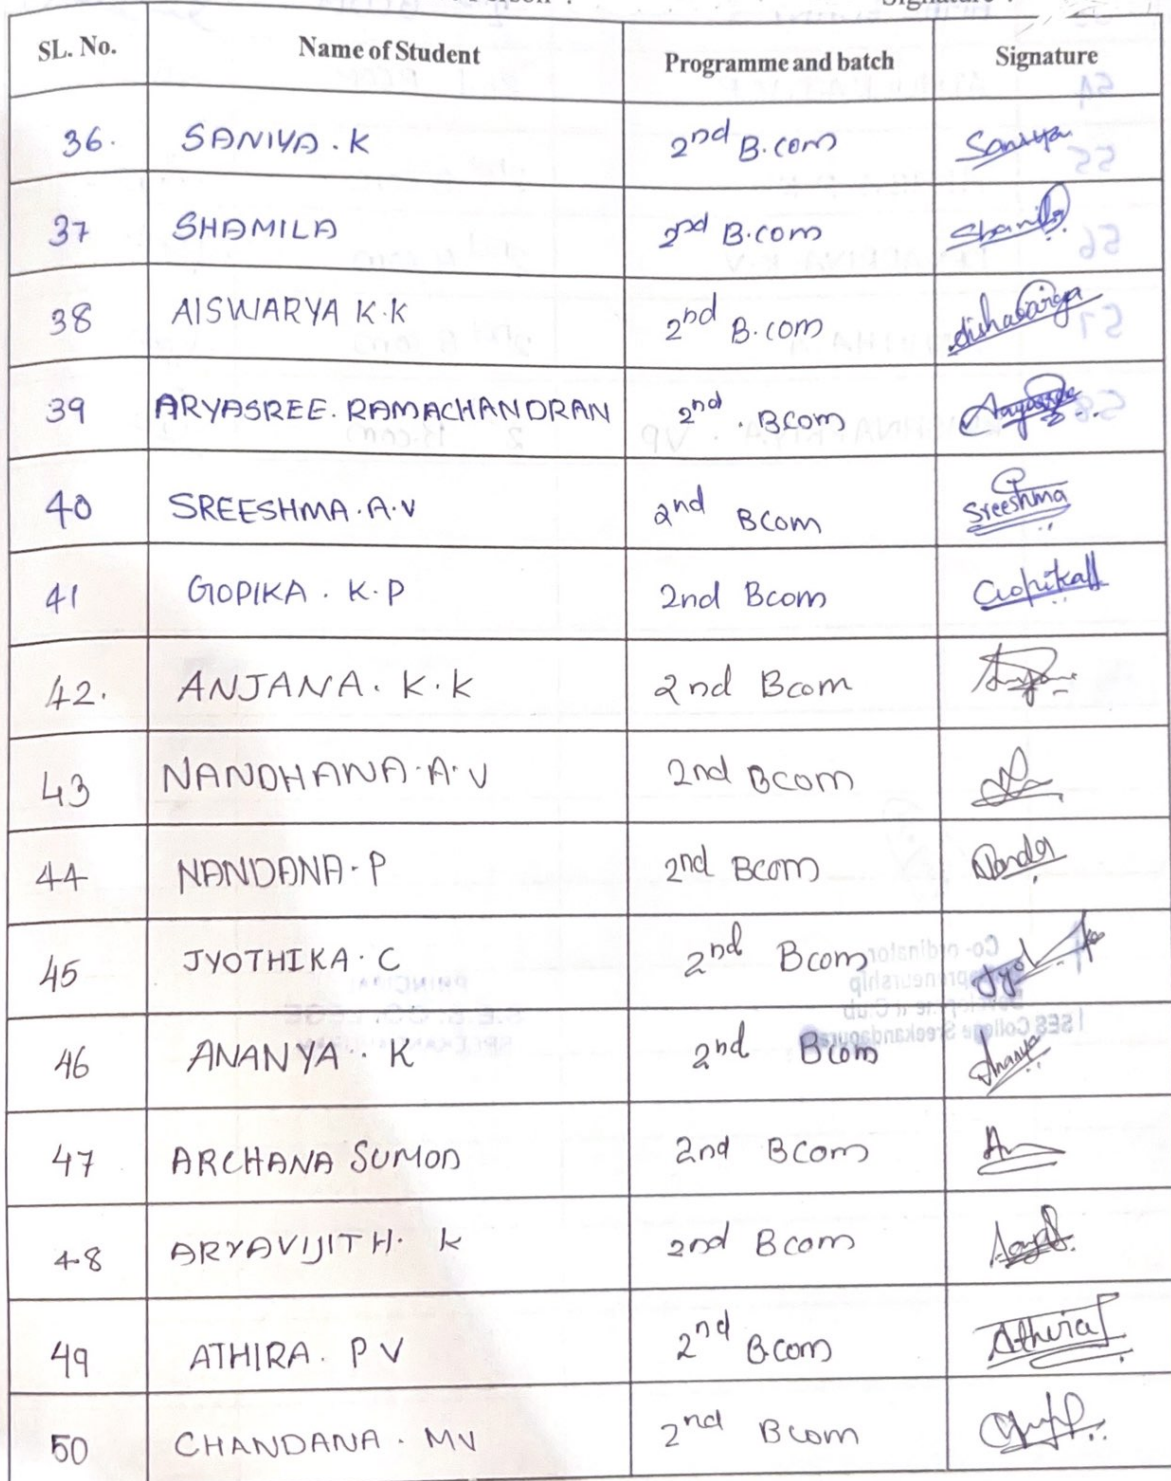 SL. No. Name of Student Programme and batch Signature
36. SANIYA . K 2nd B.com Saniya
37 SHAMILA 2nd B.com Shamila
38 AISWARYA K.K 2nd B.com
39 ARYASREE. RAMACHANDRAN 2nd . BCom
40 SREESHMA . A . V 2nd BCom Sreeshma
41 GOPIKA . K . P 2nd Bcom Gopika
42. ANJANA . K . K 2nd Bcom
43 NANDHANA . A . V 2nd Bcom
44 NANDANA . P 2nd Bcom Nanda
45 JYOTHIKA . C 2nd Bcom
46 ANANYA . K 2nd Bcom Ananya
47 ARCHANA SUMOD 2nd BCom
48 ARYAVIJITH . K 2nd Bcom
49 ATHIRA . P V 2nd B.com Athira
50 CHANDANA . MV 2nd Bcom